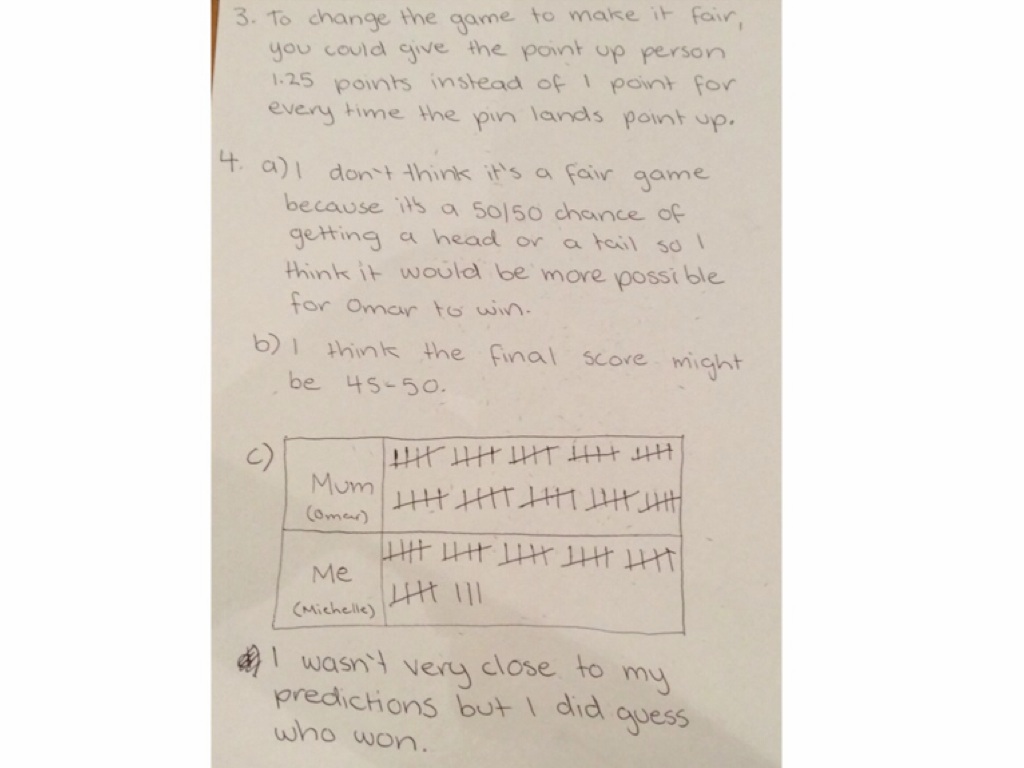 3. To change the game to make it fair,
you could give the point up person
1.25 points instead of 1 point for
every time the pin lands point up.
4. a) I don't think it's a fair game
because it's a 50/50 chance of
getting a head or a tail so I
think it would be more possible
for Omar to win.
b) I think the final score might
be 45-50.
c)
Mum
(Omar)
Me
(Michelle)
I wasn't very close to my
predictions but I did guess
who won.